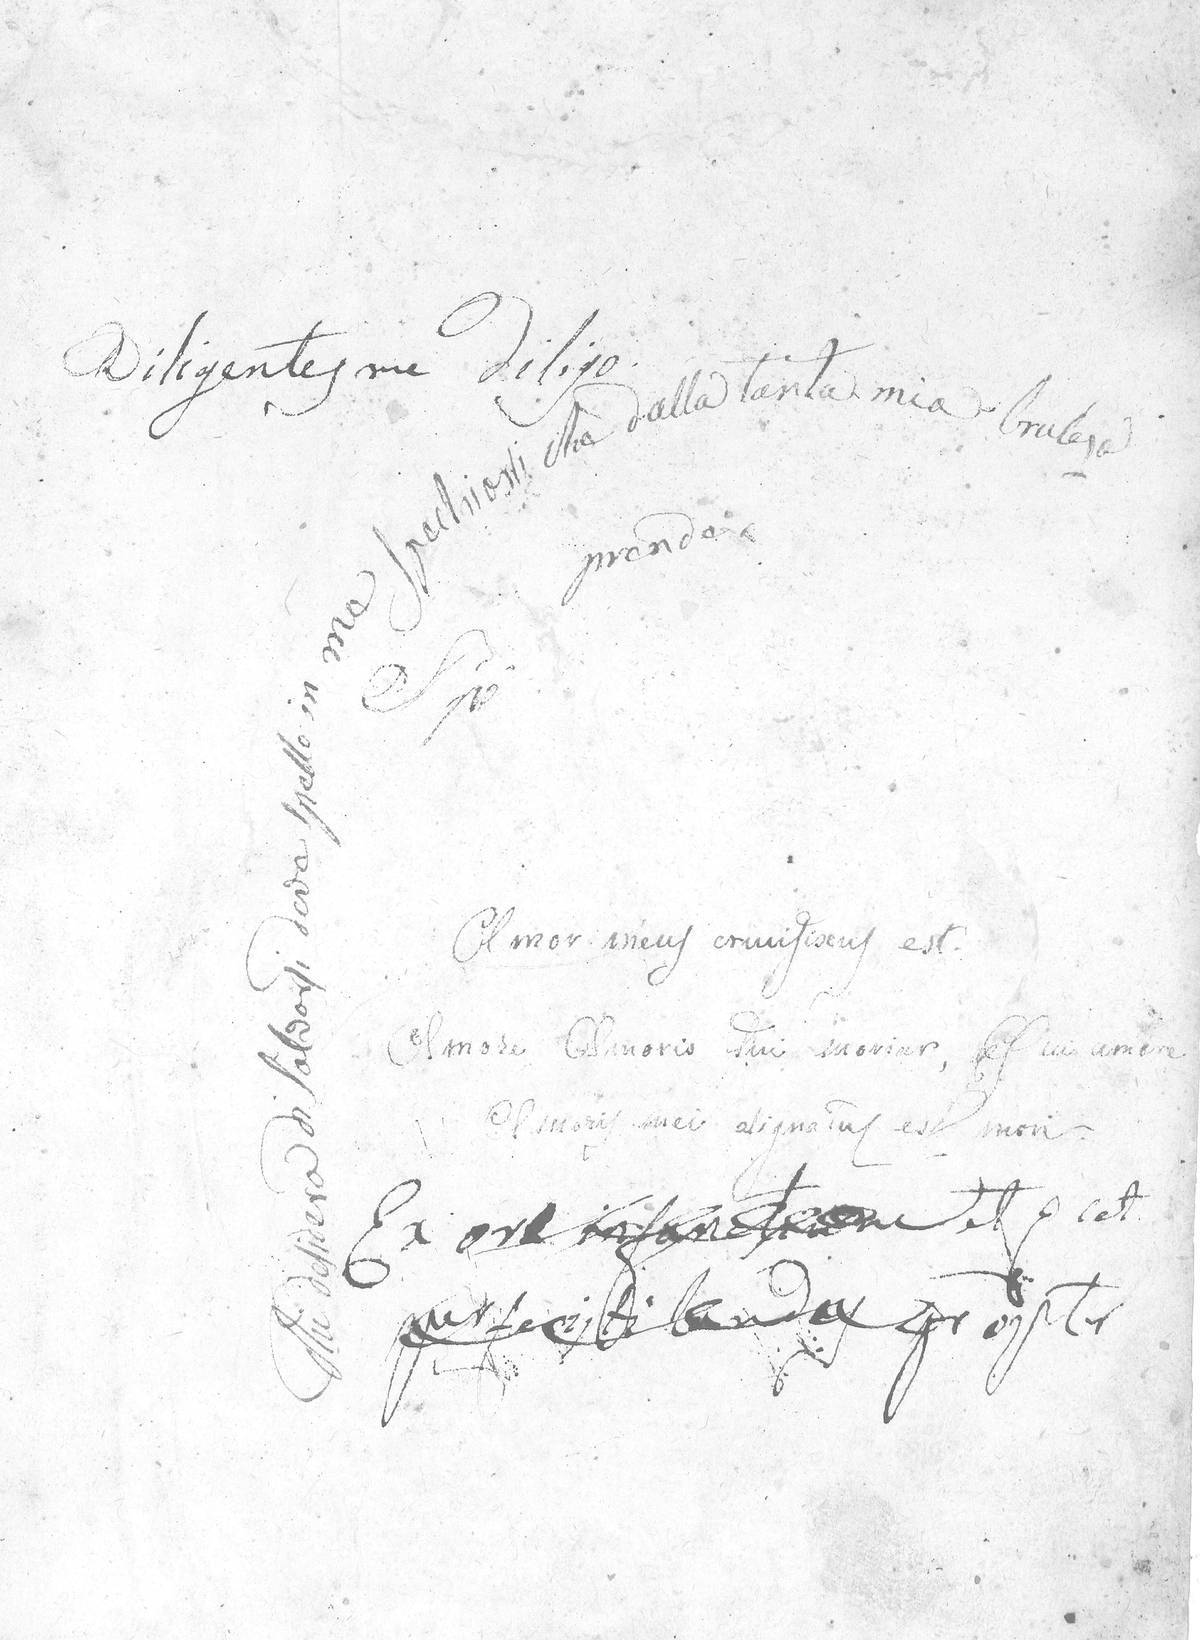 Diligentes me diligo.
Chi desidera di saldarsi deva spesso in me spechiarsi che dalla tanta mia
prendera
Amor meus crucifixus est.
Amore Amoris tui moriar, qui amore
Amoris mei dignatus est mori.
Ex ore infantium et lact
perfecisti laudem propter